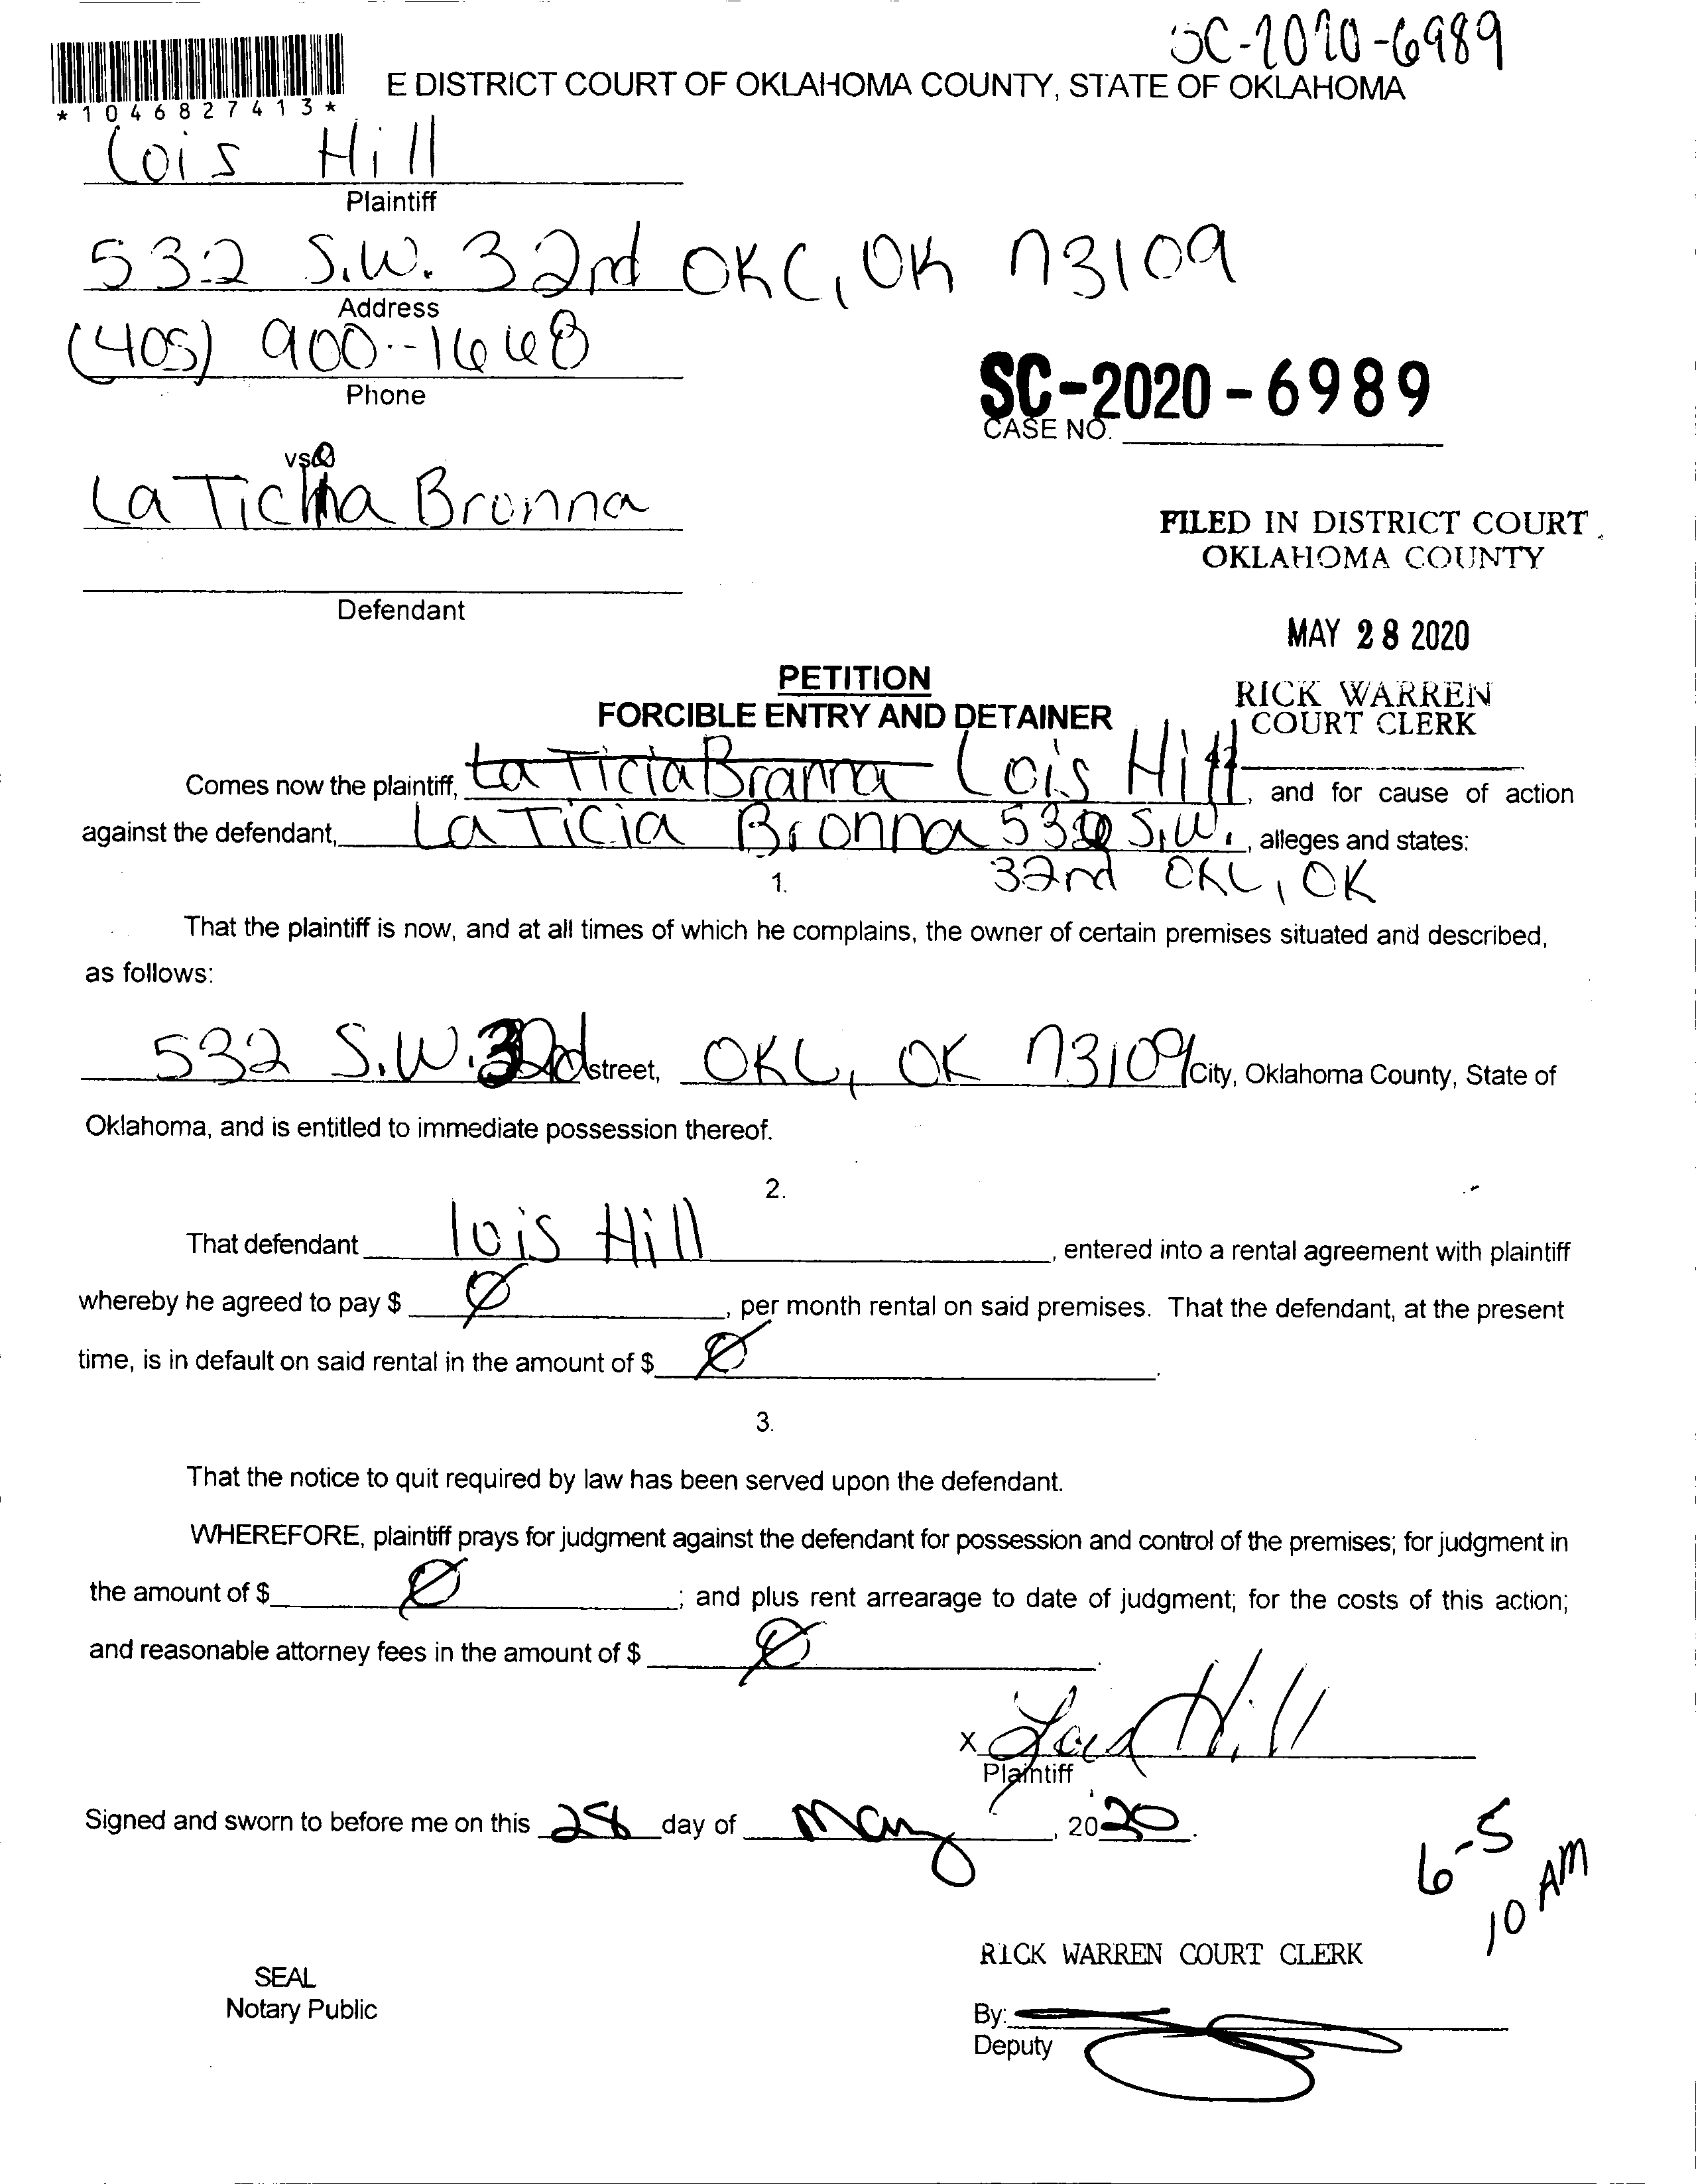 SC-2020-6989
E DISTRICT COURT OF OKLAHOMA COUNTY, STATE OF OKLAHOMA
*1046827413*
Lois Hill
Plaintiff
532 S.W. 32nd OKC, OK 73109
Address
(405) 900-1668
Phone
SC-2020-6989
CASE NO.
vs
La Ticia Bronna
FILED IN DISTRICT COURT
OKLAHOMA COUNTY
Defendant
MAY 28 2020
PETITION
RICK WARREN
FORCIBLE ENTRY AND DETAINER
COURT CLERK
42
Comes now the plaintiff, La Ticia Branna Lois Hill, and for cause of action
against the defendant, La Ticia Bronna 532 S.W., alleges and states:
32nd OKC, OK
1.
That the plaintiff is now, and at all times of which he complains, the owner of certain premises situated and described,
as follows:
532 S.W. 32nd street, OKC, OK 73109 City, Oklahoma County, State of
Oklahoma, and is entitled to immediate possession thereof.
2.
That defendant lois Hill, entered into a rental agreement with plaintiff
whereby he agreed to pay $ Ø, per month rental on said premises. That the defendant, at the present
time, is in default on said rental in the amount of $ Ø.
3.
That the notice to quit required by law has been served upon the defendant.
WHEREFORE, plaintiff prays for judgment against the defendant for possession and control of the premises; for judgment in
the amount of $ Ø; and plus rent arrearage to date of judgment; for the costs of this action;
and reasonable attorney fees in the amount of $ Ø.
x Lois Hill
Plaintiff
Signed and sworn to before me on this 28 day of May, 2020.
6-5
10 AM
RICK WARREN COURT CLERK
SEAL
Notary Public
By:
Deputy